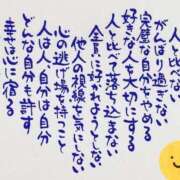 がんばり過ぎない
完璧な自分をやめる
好きな人を大切にする
人と比べて落ち込まない
全員に好かれようとしない
他人の視線を気にしない
心の逃げ場を持つこと
人は人自分は自分
どんな自分も許す
幸せは心に宿る